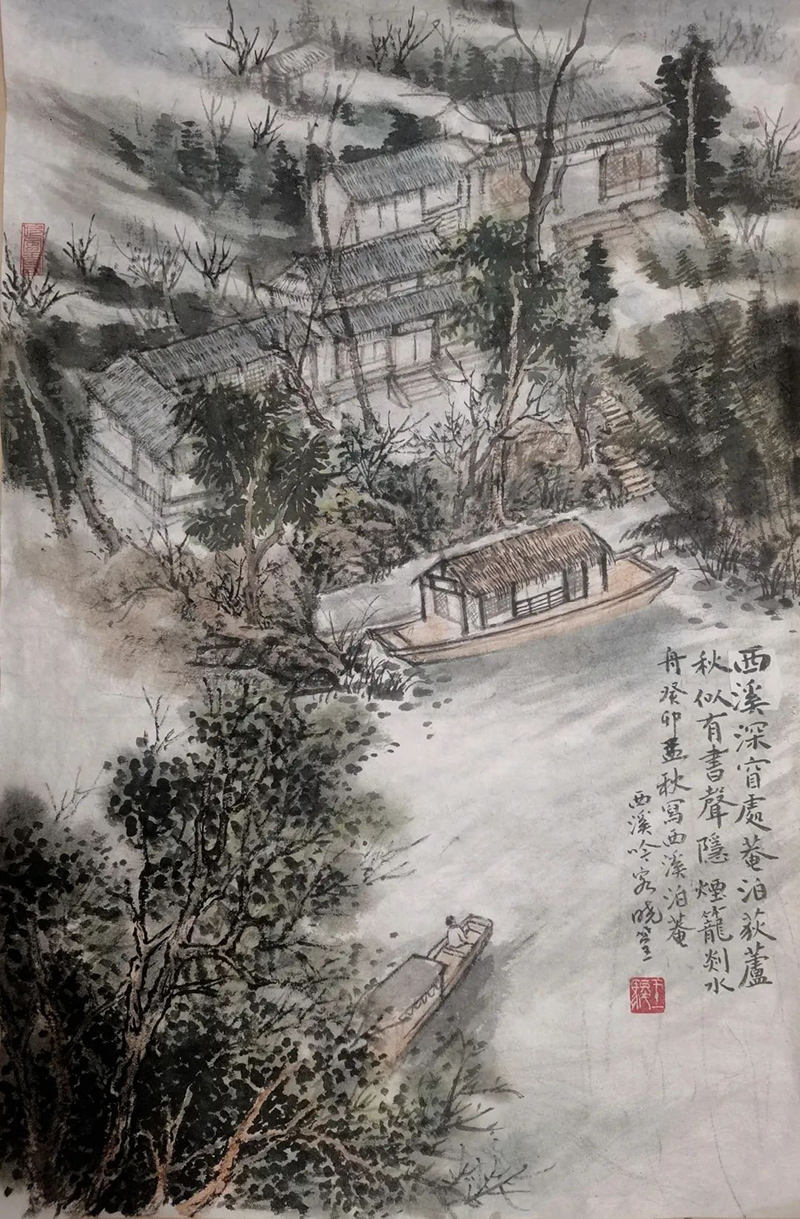 西溪深窅處菴泊荻蘆
秋似有書聲隱煙籠剡水
舟癸卯孟秋寫西溪泊菴
西溪吟客晓